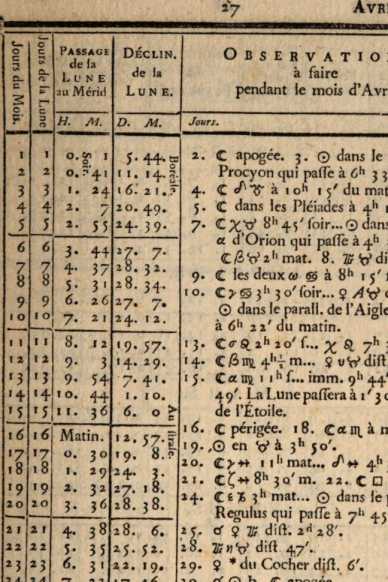 27 AVR
Jours du Mois.
Jours de la Lune
PASSAGE
de la
LUNE
au Mérid
DÉCLIN.
de la
LUNE.
OBSERVATIO
à faire
pendant le mois d'Avr
H. M. D. M. Jours.
Soir.
Boréale.
1 1 0. 5. 44.
2 2 0. 41 11. 14.
3 3 1. 24 16. 21.
4 4 2. 7 20. 49.
5 5 2. 55 24. 39.
6 6 3. 44 27. 7.
7 7 4. 37 28. 32.
8 8 5. 31 28. 34.
9 9 6. 26 27. 7.
10 10 7. 21 24. 12.
11 11 8. 12 19. 57.
12 12 9. 3 14. 29.
13 13 9. 54 7. 41.
14 14 10. 44 1. 10.
15 15 11. 36 6. 0
16 16 Matin. 12. 57.
17 17 0. 30 19. 8.
18 18 1. 29 24. 3.
19 19 2. 32 27. 18.
20 20 3. 36 28. 38.
21 21 4. 38 28. 6.
22 22 5. 35 25. 52.
23 23 6. 31 22. 19.
2. ☾ apogée. 3. ☉ dans le
Procyon qui paſſe à 6h 33
4. ☾ ♂ ♉ à 10h 15′ du mat
5. ☾ dans les Pléiades à 4h
7. ☾ χ ♉ 8h 45′ ſoir... ☉ dans
α d'Orion qui paſſe à 4h
☾ β ♉ 2h mat. 8. diſt
9. ☾ les deux ω ♋ à 8h 15′
10. ☾ γ ♋ 3h 30′ ſoir... ♀
☉ dans le parall. de l'Aigle
à 6h 22′ du matin.
13. ☾ σ ♌ 2h 20′ ſ... χ ♌ 7h
14. ☾ β ♍ 4h½ m... ♀ υ ♉ diſt
15. ☾ α ♍ 11h ſ... imm. 9h 44′
49′. La Lune paſſera à 1′ 30
de l'Étoile.
16. ☾ périgée. 18. ☾ α ♏ à m
19. ☉ en ♉ à 3h 50′.
20. ☾ γ ♐ 11h mat... ♂ ♐ 4h
21. ☾ ζ ♐ 8h 30′ m. 22. ☾ □
24. ☾ ε 3h mat... ☉ dans le p
Regulus qui paſſe à 7h 45
25. ♂ ♀ diſt. 2d 28′.
28. ♉ diſt 47′.
29. ♀ * du Cocher diſt. 6′.